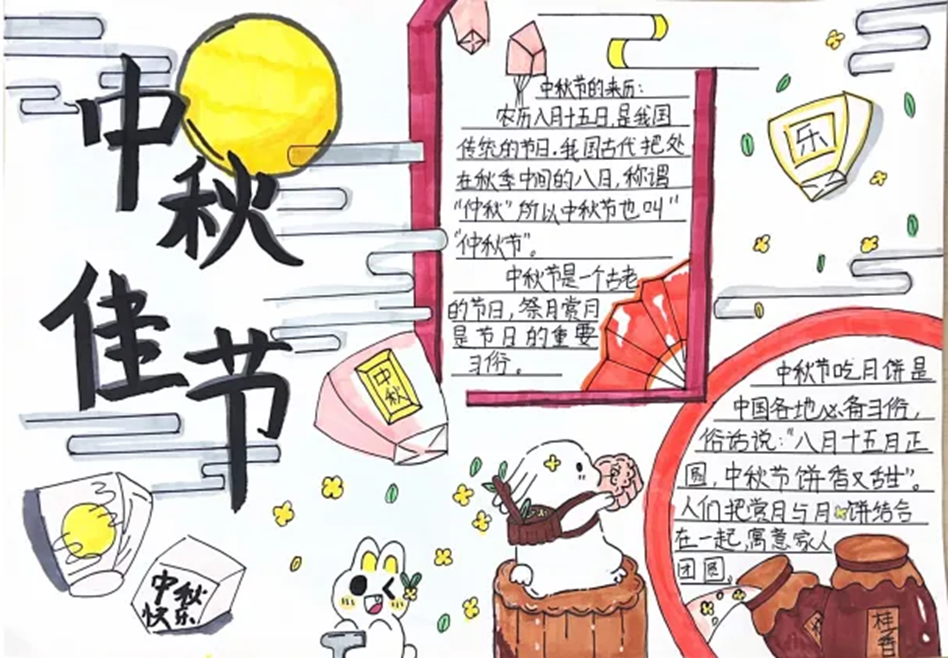 中秋
佳节
中秋节的来历:
农历八月十五日,是我国
传统的节日.我国古代把处
在秋季中间的八月,称谓
"仲秋"所以中秋节也叫"
"仲秋节"。
中秋节是一个古老
的节日,祭月赏月
是节日的重要
习俗。
乐
中秋
中秋
快乐
中秋节吃月饼是
中国各地必备习俗,
俗话说:"八月十五月正
圆,中秋节饼香又甜"。
人们把赏月与月饼结合
在一起,寓意家人
团圆。
桂香